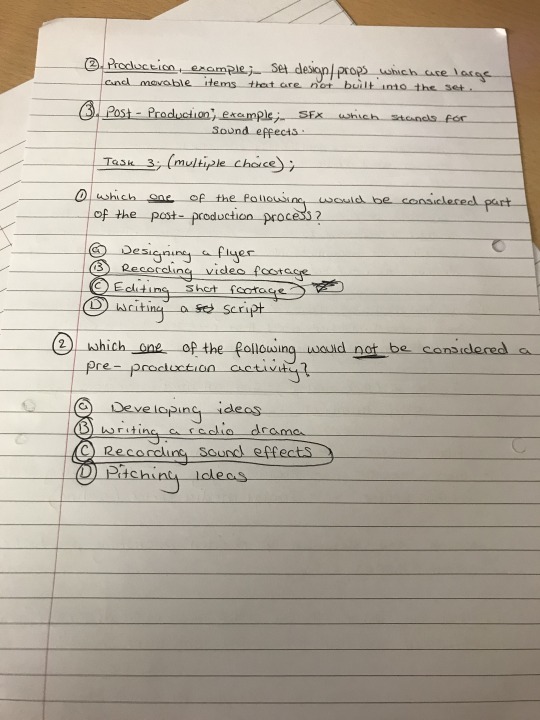 ② Production, example;- Set design/props which are large
and movable items that are not built into the set.
③ Post-Production, example;- SFX which stands for
sound effects.
Task 3; (multiple choice);
① which one of the following would be considered part
of the post-production process?
ⓐ Designing a flyer
Ⓑ Recording video footage
Ⓒ Editing shot footage
Ⓓ Writing a script
② which one of the following would not be considered a
pre-production activity?
ⓐ Developing ideas
Ⓑ Writing a radio drama
Ⓒ Recording sound effects
Ⓓ Pitching ideas